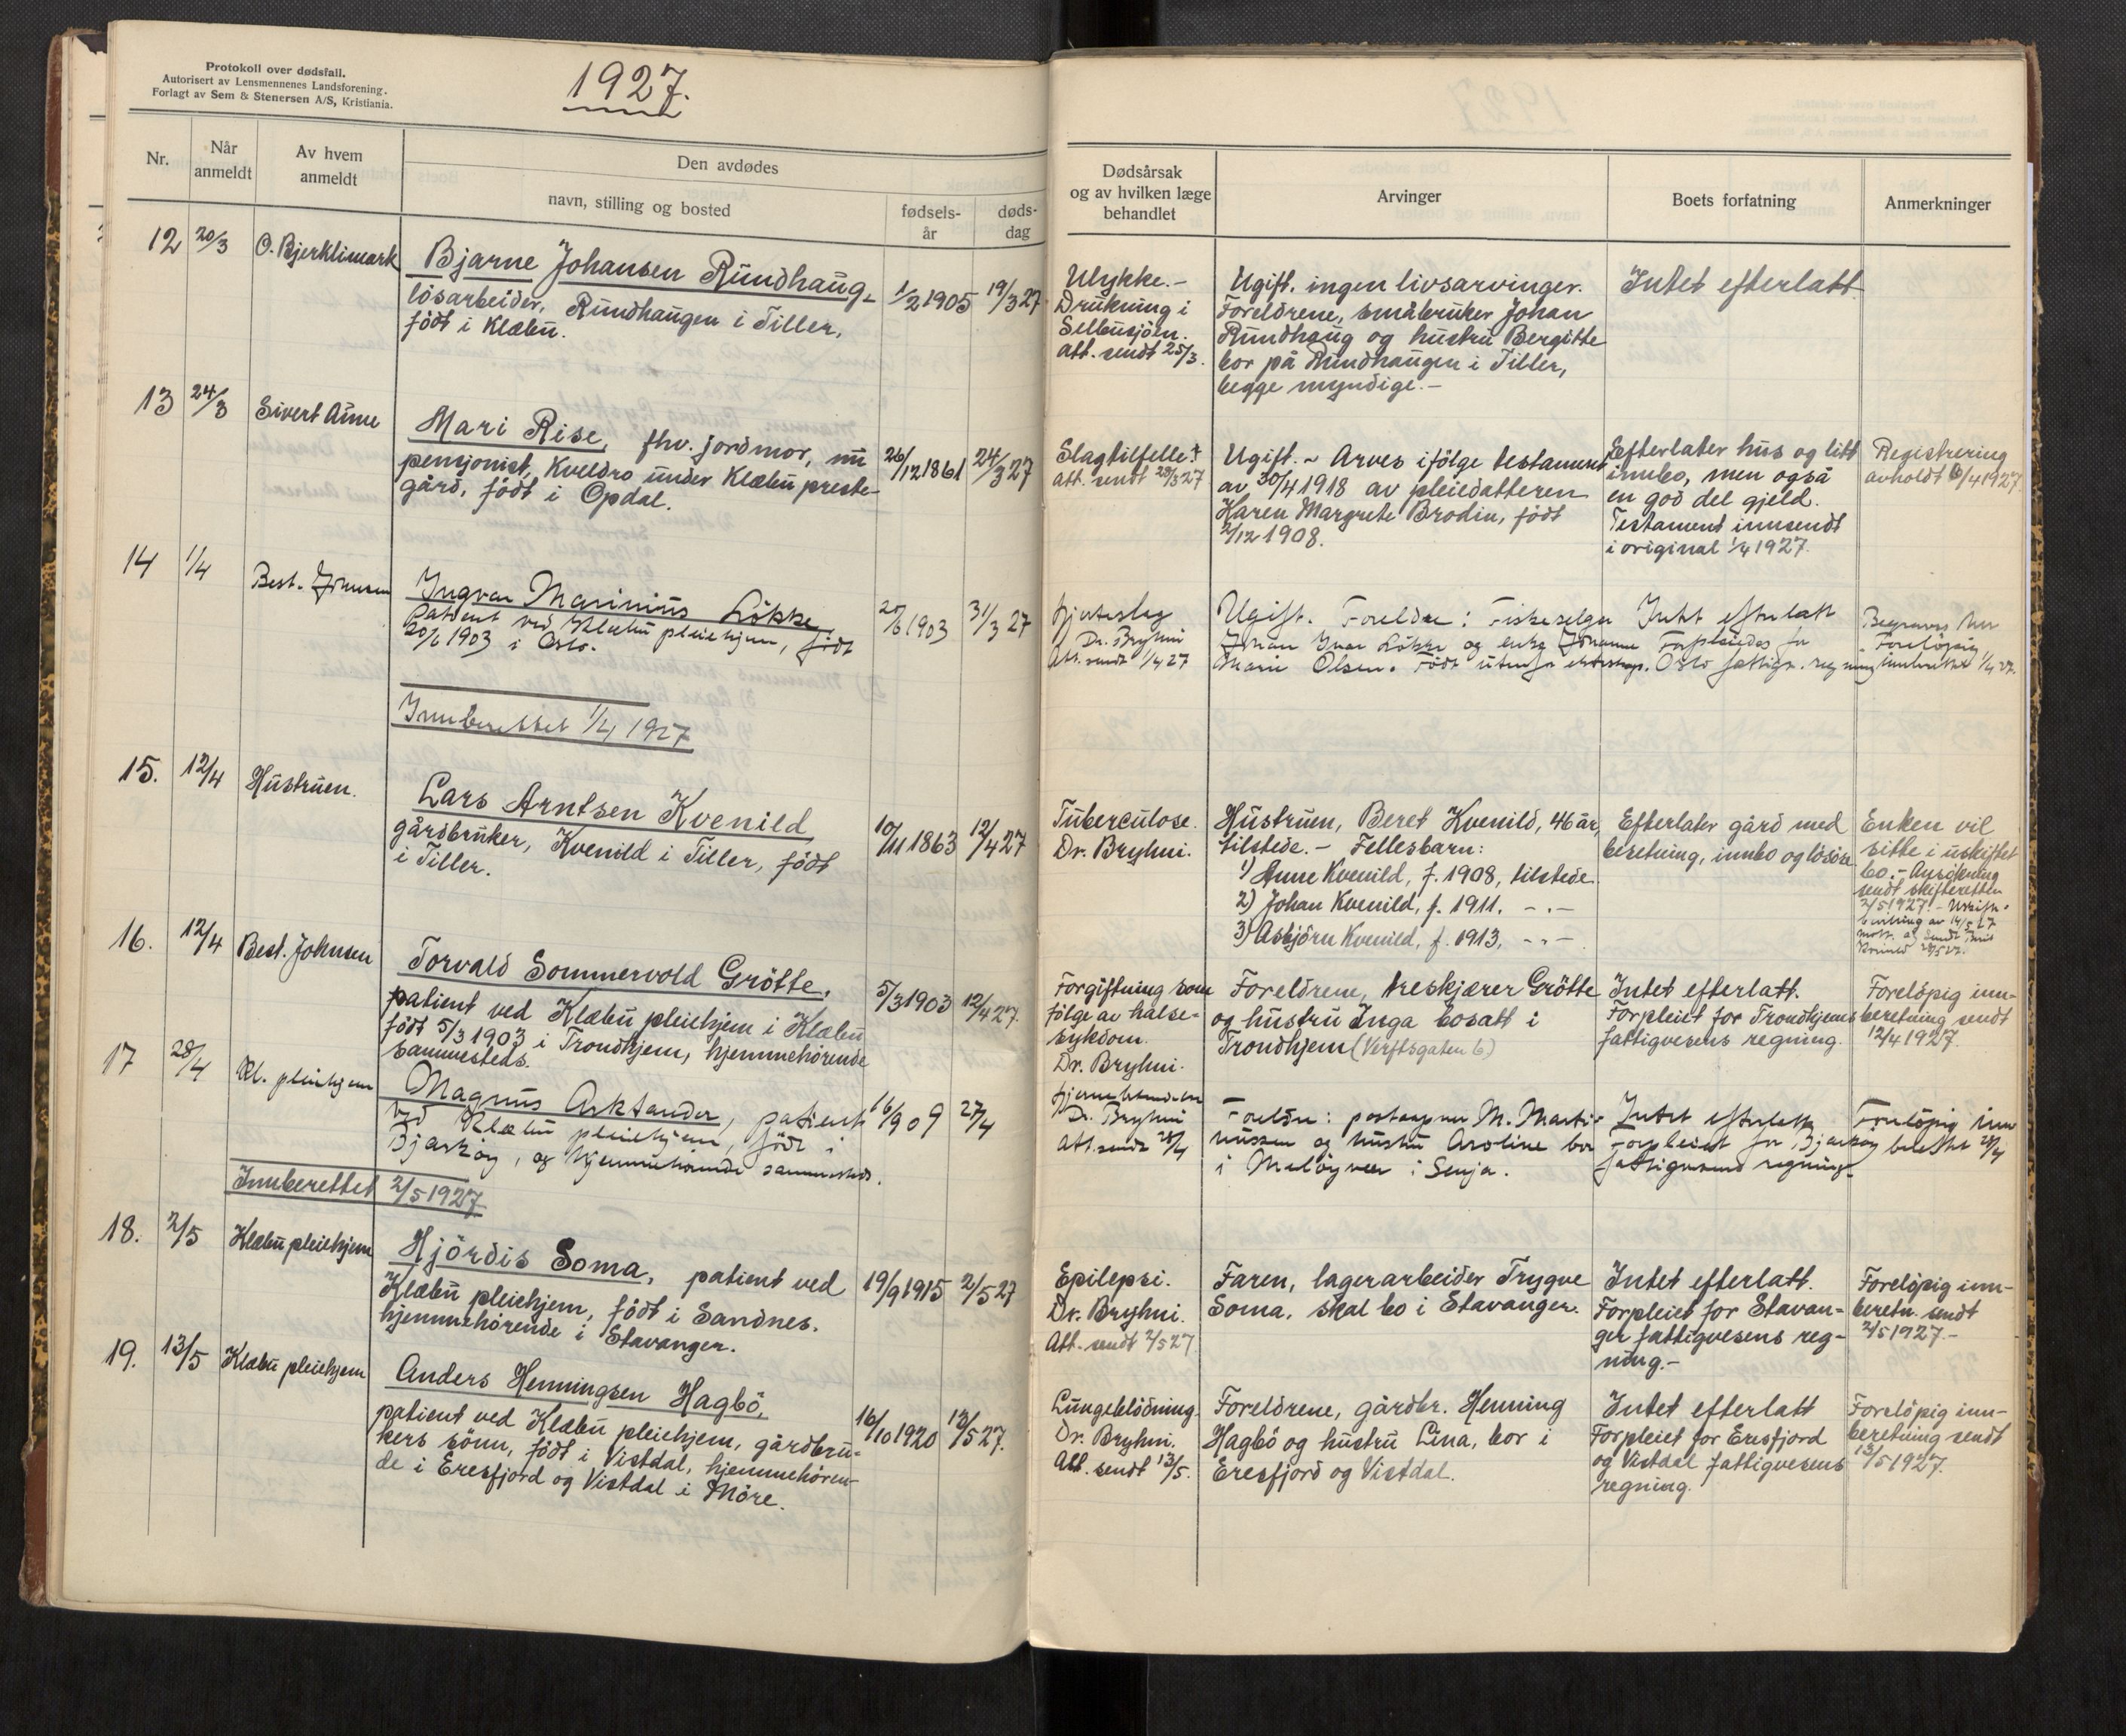 Protokoll over dødsfall.
Autorisert av Lensmennenes Landsforening.
Forlagt av Sem & Stenersen A/S, Kristiania.
1927.
Nr.
Når
anmeldt
Av hvem
anmeldt
Den avdødes
navn, stilling og bosted
fødsels-
år
døds-
dag
12 20/3 O. Bjerklimark
Bjarne Johansen Rundhaug-
lösarbeider, Rundhaugen i Tiller,
födt i Klæbu.
1/2 1905 19/3 27
13 24/3 Sivert Aune
Mari Rise, fhv. jordmor, nu
pensjonist, Kveldro under Klæbu preste-
gård, födt i Opdal.
26/12 1861 24/3 27
14 1/4 Best. Johnsen
Ingvar Marinius Lökke,
patient ved Klæbu pleiehjem, födt
20/6 1903 i Oslo.
20/6 1903 31/3 27
Innberettet 1/4 1927
15. 12/4 Hustruen.
Lars Arntsen Kvenild
gårdbruker, Kvenild i Tiller, födt
i Tiller.
10/11 1863 12/4 27
16. 12/4 Best. Johnsen
Torvald Sommervold Grötte,
patient ved Klæbu pleiehjem i Klæbu
födt 5/3 1903 i Trondhjem, hjemmehörende
sammesteds.
5/3 1903 12/4 27.
17 28/4 Kl. pleiehjem
Magnus Arktander, patient
ved Klæbu pleiehjem, födt i
Bjarköy, og hjemmehörende sammesteds.
16/9 09 27/4
Innberettet 2/5 1927
18. 2/5 Klæbu pleiehjem
Hjördis Soma, patient ved
Klæbu pleiehjem, födt i Sandnes.
hjemmehörende i Stavanger.
19/9 1915 2/5 27
19. 13/5 Klæbu pleiehjem
Anders Henningsen Hagbö,
patient ved Klæbu pleiehjem, gårdbru-
kers sönn, födt i Vistdal, hjemmehören-
de i Eresfjord og Vistdal i Möre.
16/10 1920 13/5 27.
Dødsårsak
og av hvilken læge
behandlet
Arvinger
Boets forfatning
Anmerkninger
Ulykke.-
Drukning i
Selbusjöen.
att. sendt 25/3.
Ugift. ingen livsarvinger.
Foreldrene, småbruker Johan
Rundhaug og hustru Bergitte
bor på Rundhaugen i Tiller,
begge myndige.-
Intet efterlatt
Slagtilfelle
att. sendt 28/3 27
Ugift. - Arves ifölge testament
av 30/4 1918 av pleiedatteren
Karen Margrete Brodin, födt
2/12 1908.
Efterlater hus og litt
innbo, men også
en god del gjeld.
Testament innsendt
i original 1/4 1927.
Registrering
avholdt 6/4 1927
Hjerteslag
Dr. Bryhni
Att. sendt 1/4 27
Ugift. Foreldre: Fiskeselger
Johan Ivar Lökke og enke Johanne
Marie Olsen. Födt utenfor ekteskap.
Intet efterlatt
Forpleiedes for
Oslo fattigv. regning
Begraves her
Forelöpig
innberettet 1/4 27.
Tuberculose.
Dr. Bryhni.
Hustruen, Beret Kvenild, 46 år,
tilstede.- Fellesbarn:
1) Anne Kvenild, f. 1908, tilstede.
2) Johan Kvenild, f. 1911. -.-
3) Asbjörn Kvenild, f. 1913, -.-
Efterlater gård med
besetning, innbo og lösöre
Enken vil
sitte i uskiftet
bo.- Ansökning
sendt skifteretten
2/5 1927.-
Forgiftning som
fölge av halse-
sykdom.
Dr. Bryhni.
Foreldrene, treskjærer Grötte
og hustru Inga bosatt i
Trondhjem (Verftsgaten 6)
Intet efterlatt.
Forpleiet for Trondhjems
fattigvesens regning.
Forelöpig inn-
beretning sendt
12/4 1927.
Dr. Bryhni
Att. sendt 28/4
Foreldre: M. Marti-
nussen og hustru Aroline bor
i Melöyvær i Senja.
Intet efterlatt
Forpleiet for Bjarköy
fattigvesens regning.
Forelöpig inn
berettet 28/4
Epilepsi.
Dr. Bryhni.
Att. sendt 2/5 27
Faren, lagerarbeider Trygve
Soma, skal bo i Stavanger.
Intet efterlatt.
Forpleiet for Stavan-
ger fattigvesens reg-
ning.-
Forelöpig inn-
beretn. sendt
2/5 1927.-
Lungeblödning.
Dr. Bryhni.
Att. sendt 13/5.
Foreldrene, gårdbr. Henning
Hagbö og hustru Lina, bor i
Eresfjord og Vistdal.
Intet efterlatt
Forpleiet for Eresfjord
og Vistdal fattigvesens
regning.
Forelöpig inn-
beretning sendt
13/5 1927.